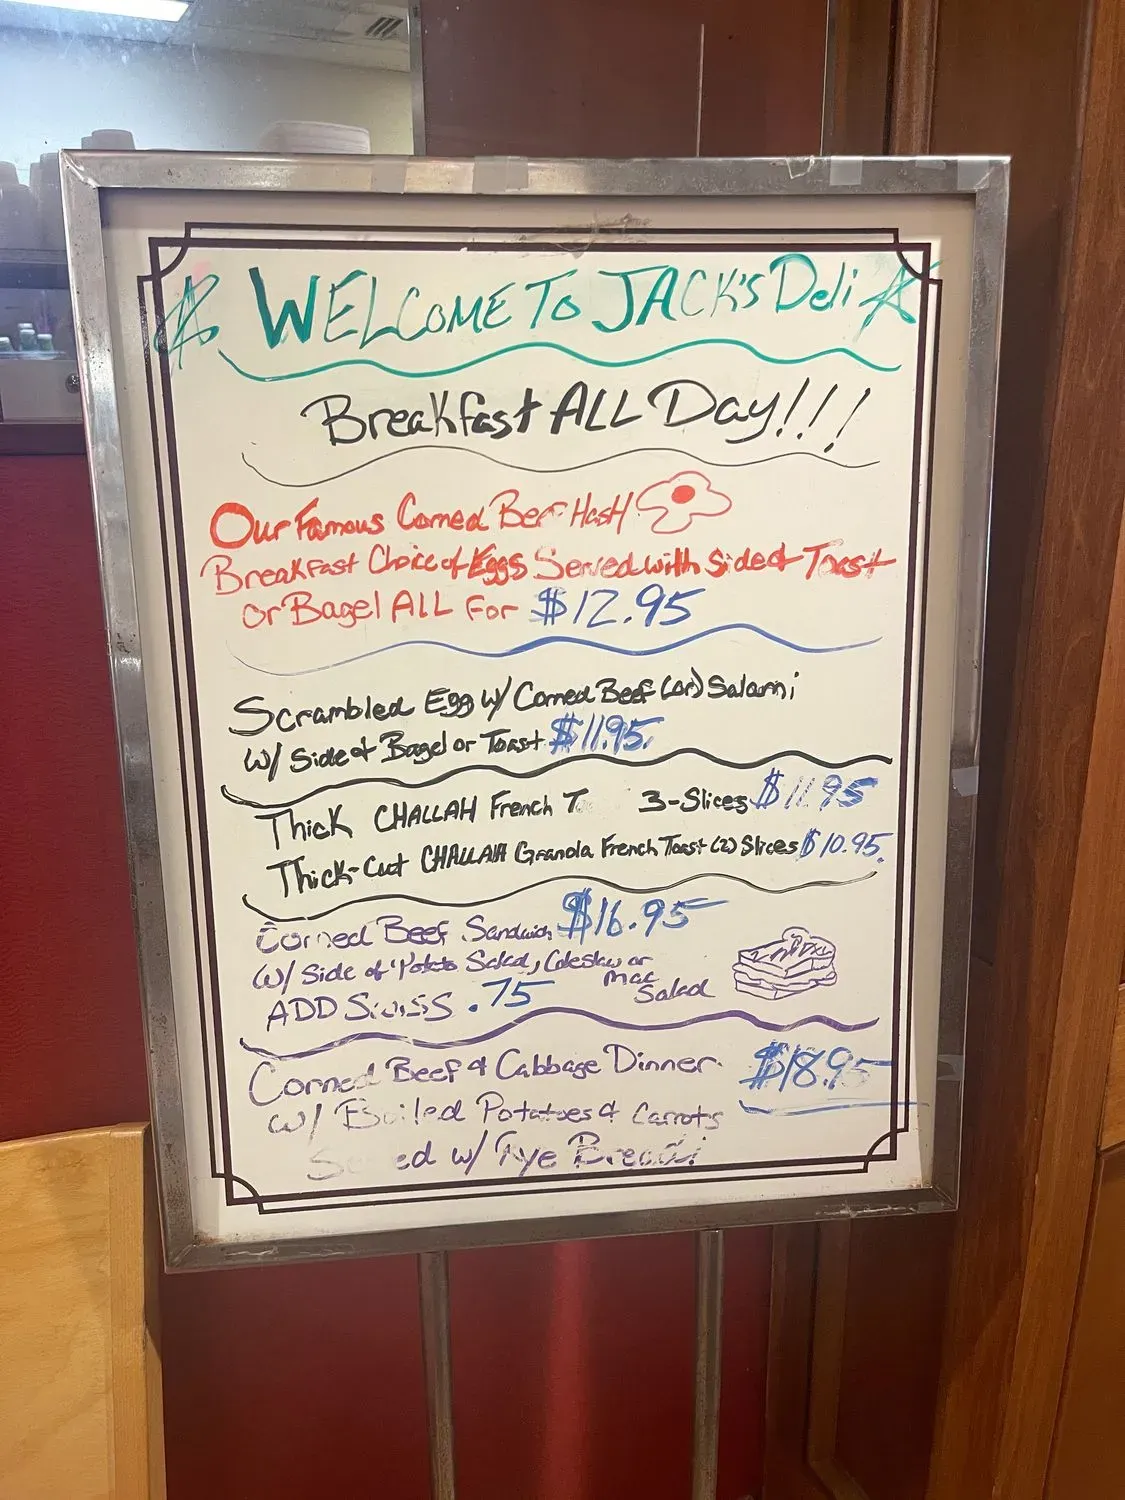 WELCOME TO JACK'S Deli
Breakfast ALL Day!!!
Our Famous Corned Beef Hash
Breakfast Choice of Eggs Served with side of Toast
or Bagel ALL For $12.95
Scrambled Egg w/ Corned Beef (or) Salami
w/ side of Bagel or Toast $11.95
Thick CHALLAH French T 3-Slices $11.95
Thick-Cut CHALLAH Granola French Toast (2) Slices $10.95
Corned Beef Sandwich $16.95
w/ side of Potato Salad, Coleslaw or
Mac
Salad
ADD Swiss .75
Corned Beef & Cabbage Dinner $18.95
w/ Boiled Potatoes & Carrots
Served w/ Rye Bread